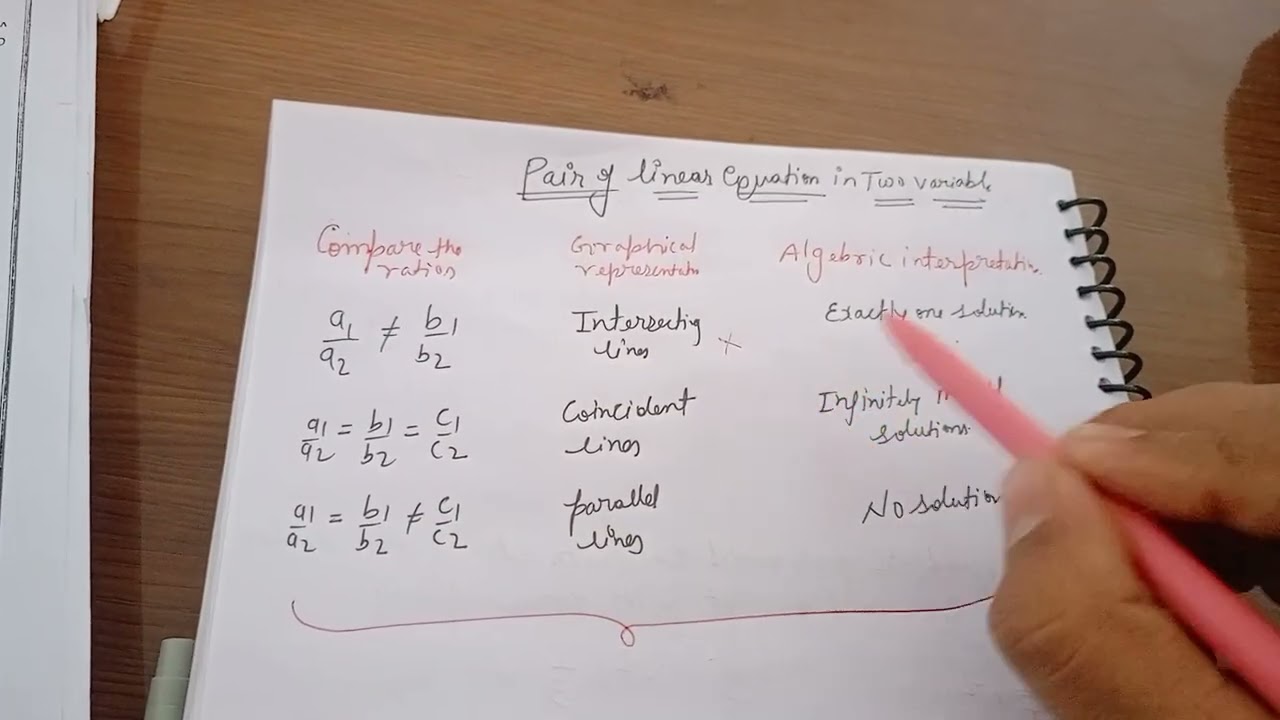 Pair of linear Equation in Two variable
Compare the ratios
Graphical representatn
Algebric interpretation
a1/a2 ≠ b1/b2
Intersecting lines
Exactly one solution
a1/a2 = b1/b2 = c1/c2
Coincident lines
Infinitely
solutions.
a1/a2 = b1/b2 ≠ c1/c2
parallel lines
No solution